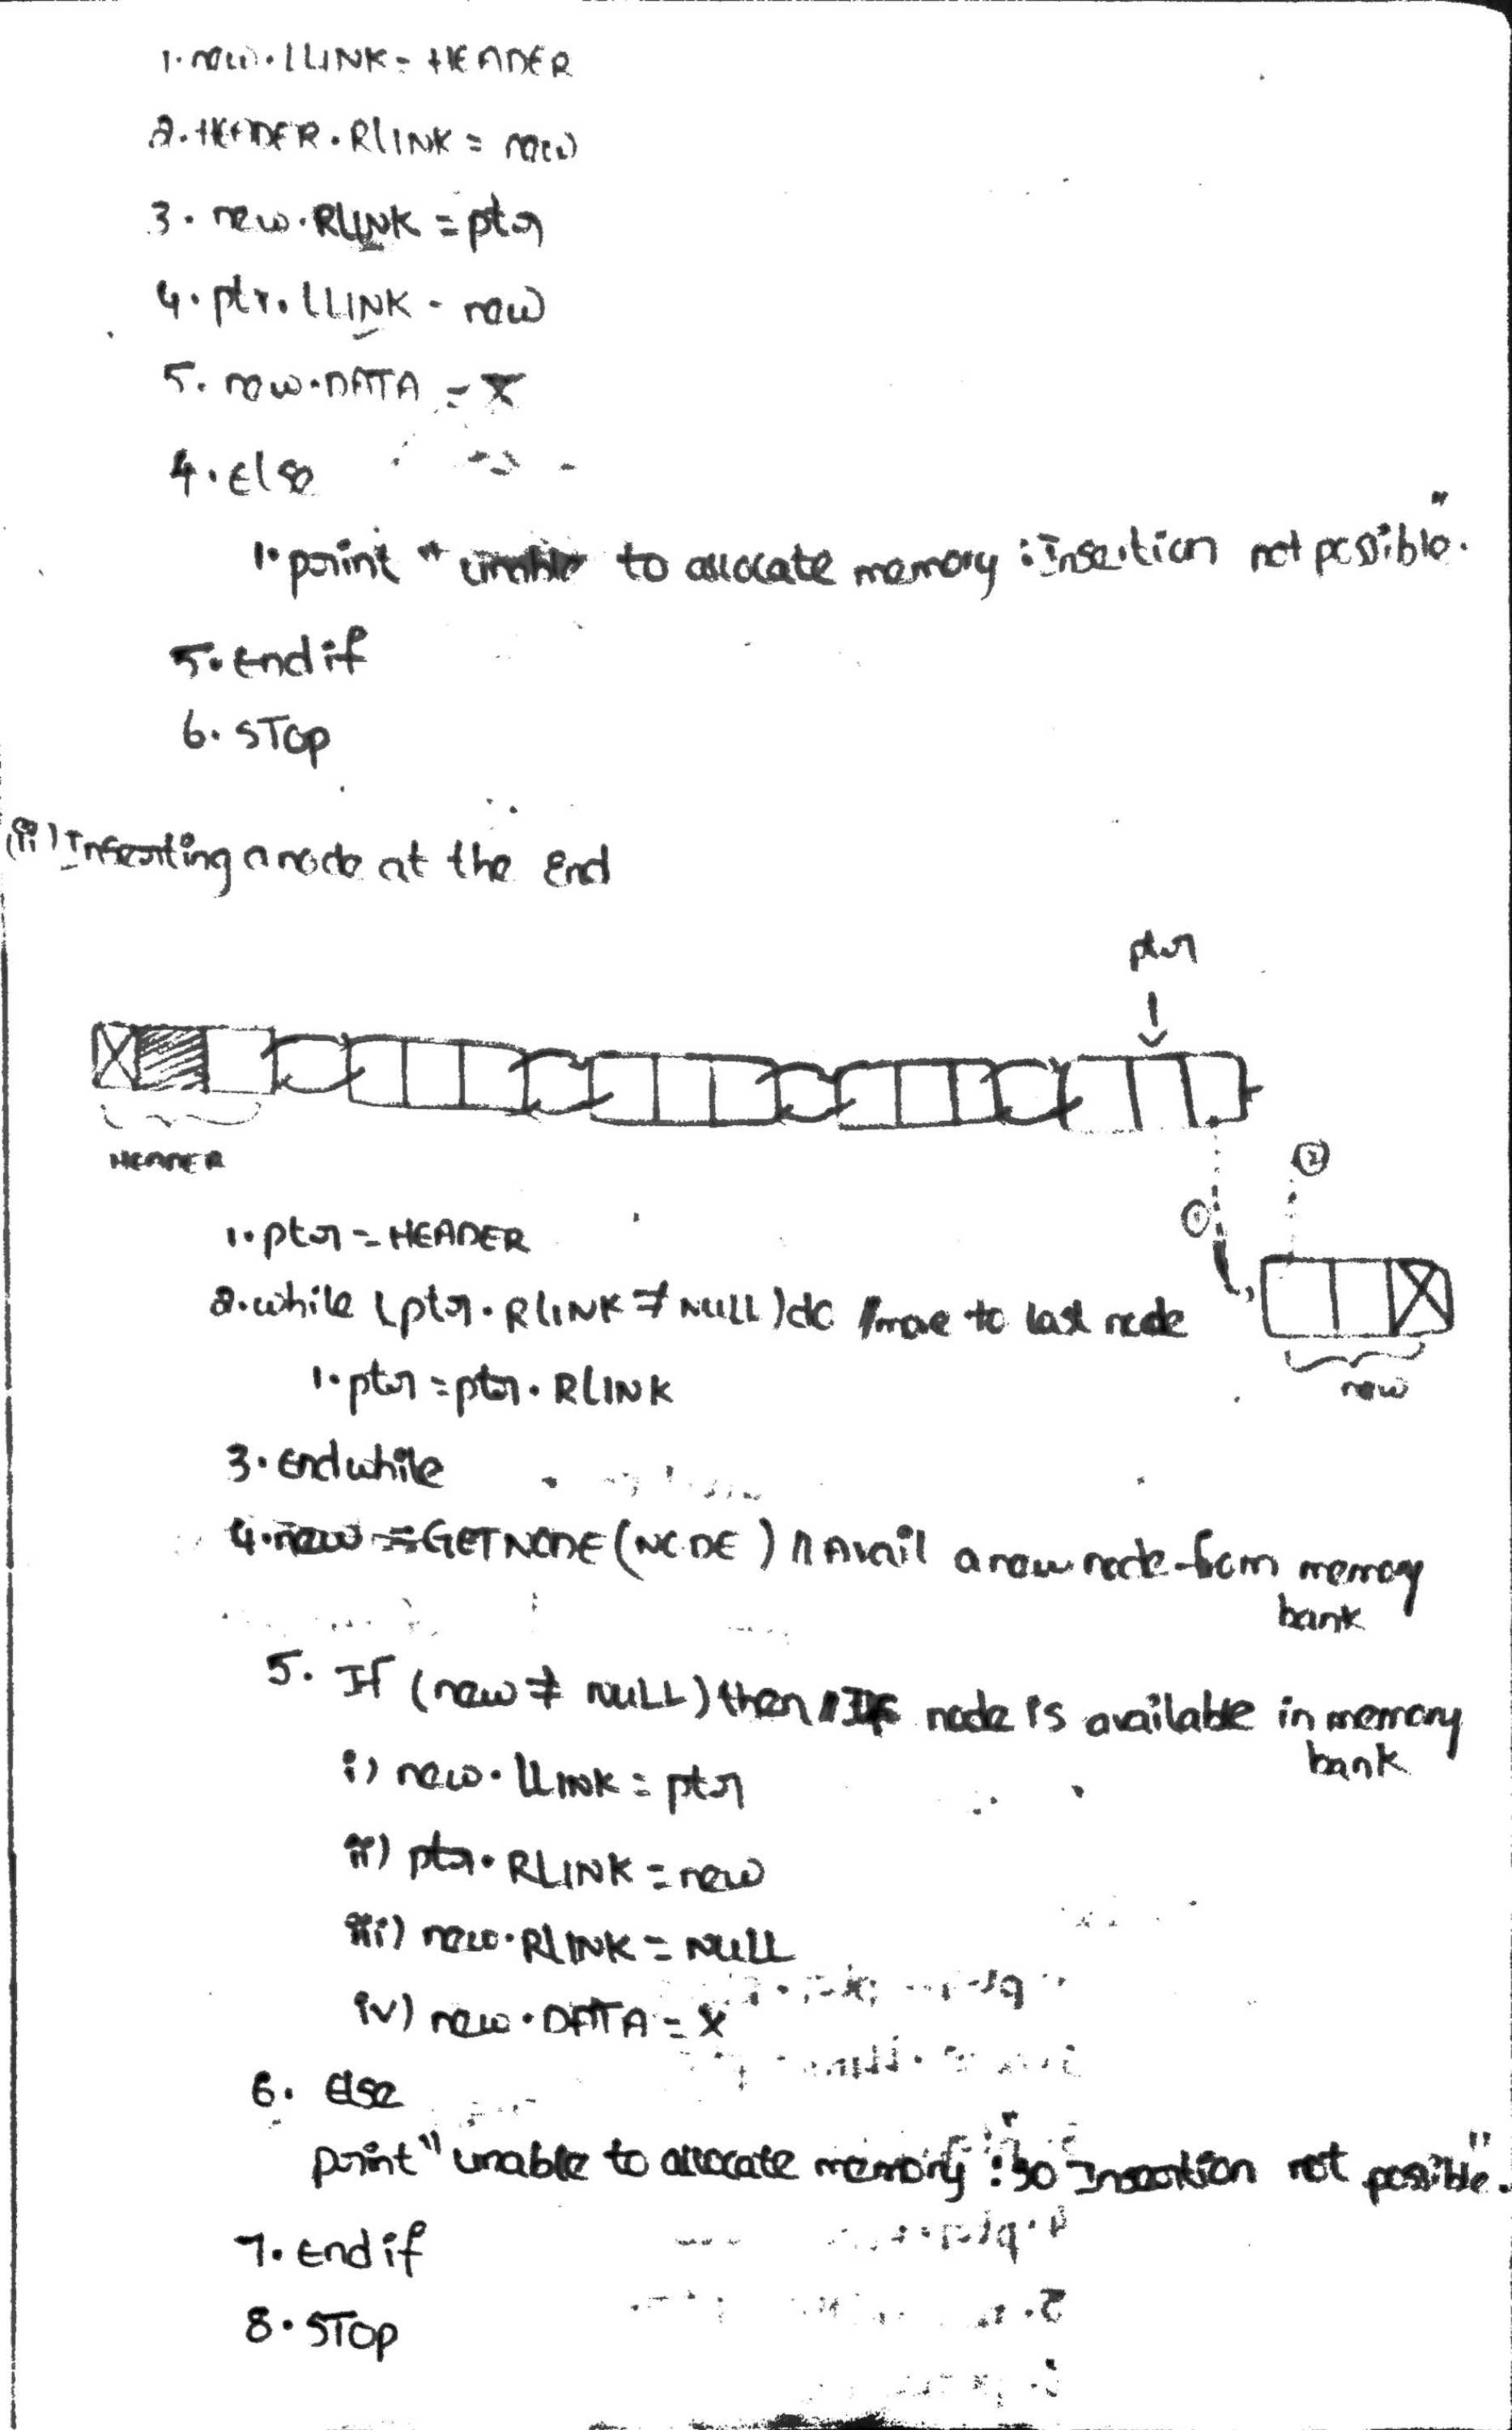 1. new.LLINK = HEADER
2. HEADER.RLINK = new
3. new.RLINK = ptr
4. ptr.LLINK = new
5. new.DATA = X
4. Else
1. print "unable to allocate memory : Insertion not possible."
5. Endif
6. STOP
(ii) Inserting a node at the End
ptr
HEADER
①
②
new
1. ptr = HEADER
2. while (ptr.RLINK ≠ NULL) do //move to last node
1. ptr = ptr.RLINK
3. Endwhile
4. new = GETNODE (NODE) // Avail a new node from memory
bank
5. If (new ≠ NULL) then // If node is available in memory
bank
i) new.LLINK = ptr
ii) ptr.RLINK = new
iii) new.RLINK = NULL
iv) new.DATA = X
6. Else
print "unable to allocate memory : so Insertion not possible."
7. Endif
8. STOP